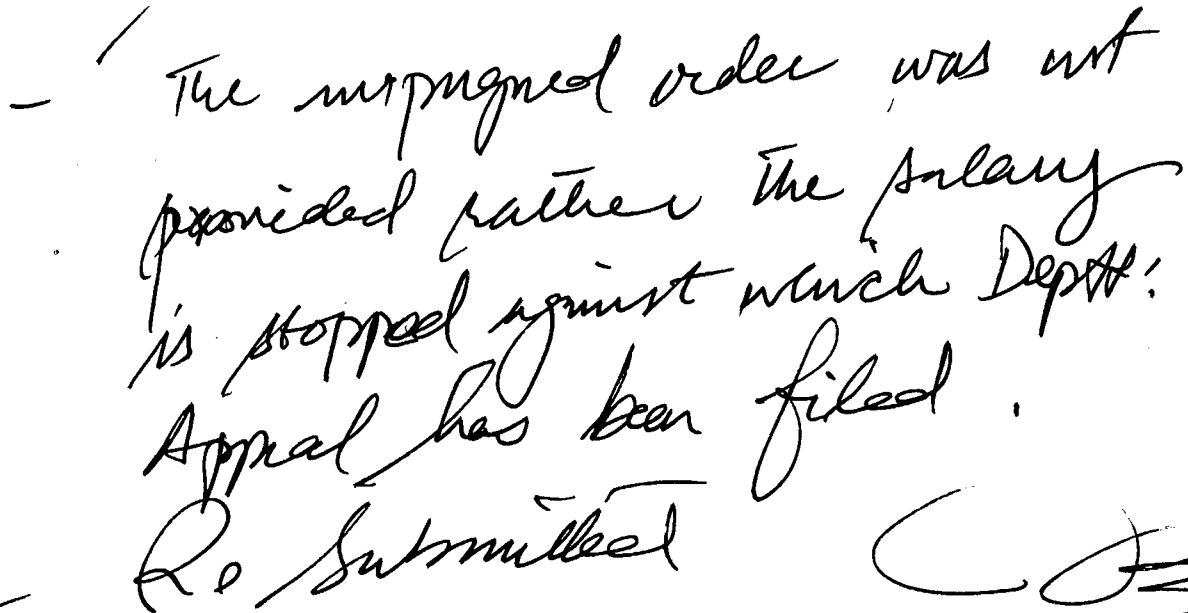 The impugned order was not
provided rather the salary
is stopped against which Deptt:
Appeal has been filed.
Re Submitted